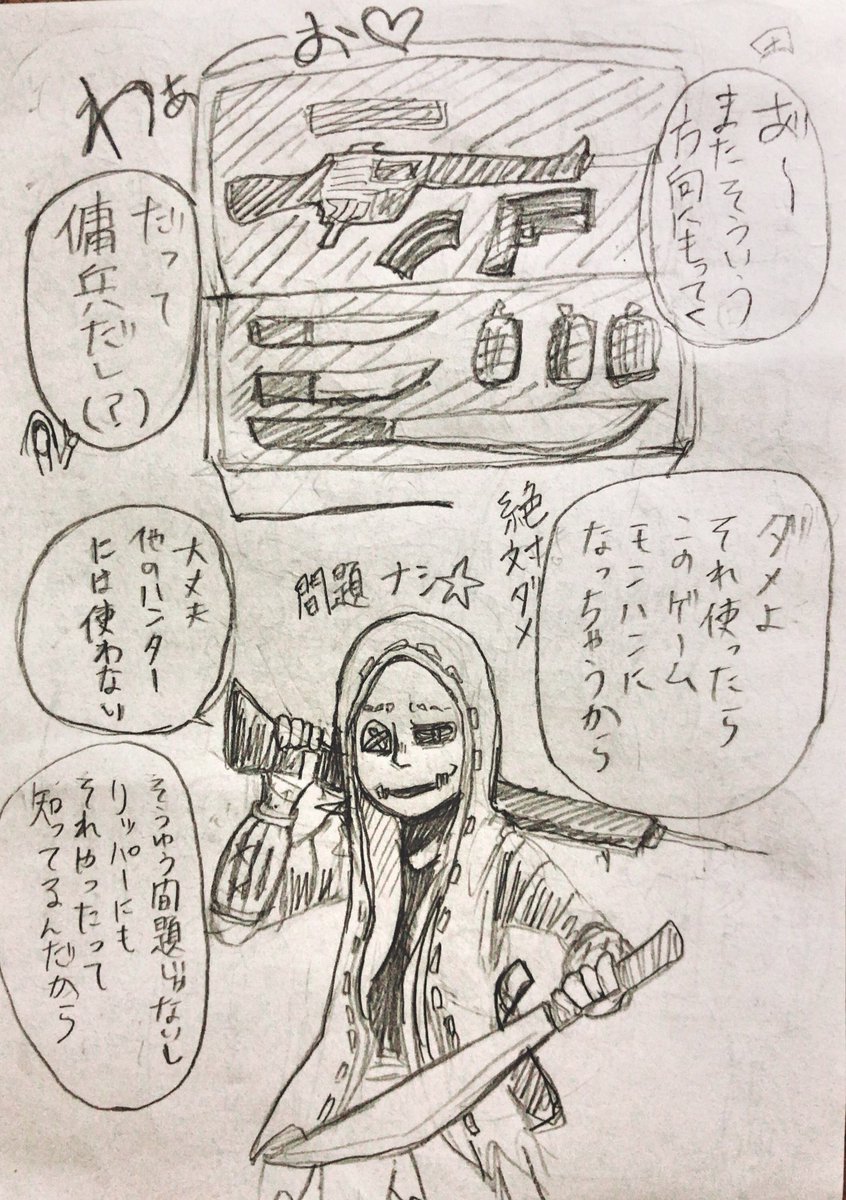 お♡
わぁ
あ〜
またそういう
方向へもってく
だって
傭兵だし(?)
ダメよ
それ使ったら
このゲーム
モンハンに
なっちゃうから
絶対ダメ
問題ナシ☆
大丈夫
他のハンター
には使わない
そうゆう問題じゃないし
リッパーにも
それやったって
知ってるんだから